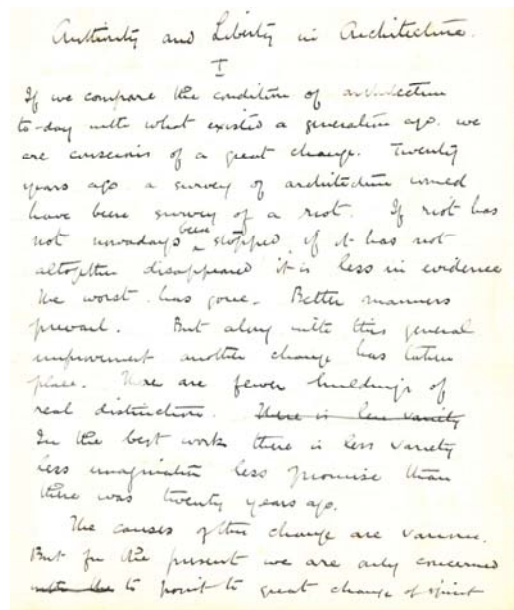 Authority and Liberty in Architecture.
I
If we compare the condition of architecture
to-day with what existed a generation ago we
are conscious of a great change. Twenty
years ago a survey of architecture would
have been survey of a riot. If riot has
not nowadays been stopped, if it has not
altogether disappeared it is less in evidence
The worst has gone. Better manners
prevail. But along with this general
improvement another change has taken
place. There are fewer buildings of
real distinction. There is less variety
In the best work there is less variety
less imagination less promise than
there was twenty years ago.
The causes of this change are various.
But for the present we are only concerned
with the to point to great change of spirit